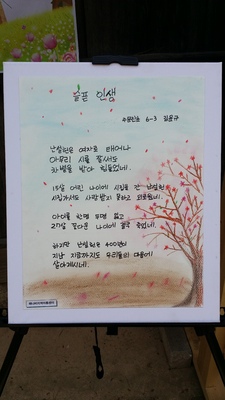 슬픈 인생
6-3 김윤구
난설헌은 여자로 태어나
아무리 시를 잘써도
차별을 받아 힘들었네.
15살 어린 나이에 시집을 간 난설헌
시집가서도 사랑받지 못하고 외로웠네.
아이를 한명 두명 잃고
27살 꽃다운 나이에 결국 죽었네.
하지만 난설헌은 400년이
지난 지금까지도 우리들의 마음에
살아계시네.